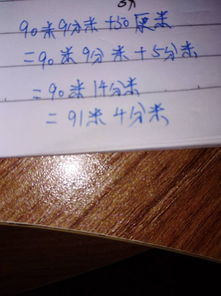 90米9分米+50厘米
=90米9分米+5分米
=90米14分米
=91米4分米